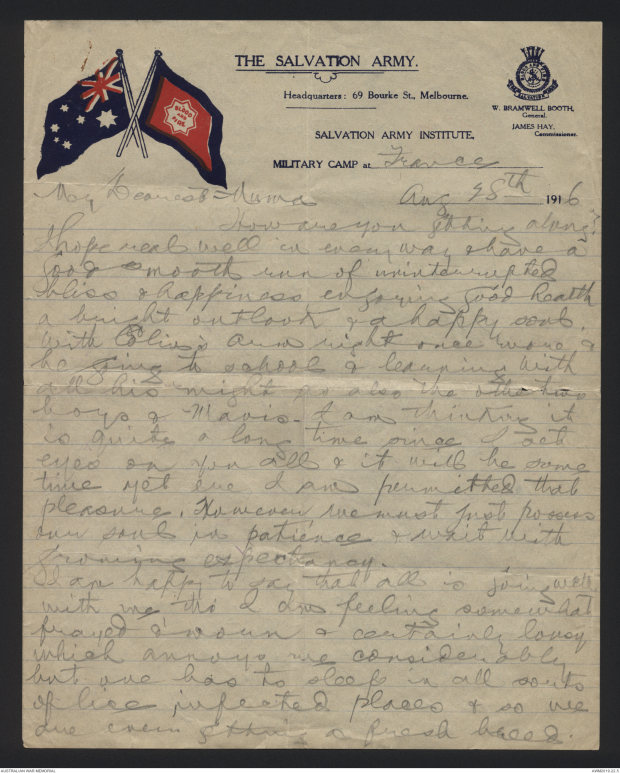 THE SALVATION ARMY.
Headquarters: 69 Bourke St., Melbourne.
BLOOD AND FIRE
W. BRAMWELL BOOTH,
General.
JAMES HAY,
Commissioner.
SALVATION ARMY INSTITUTE,
MILITARY CAMP at France
My Dearest Numa
Aug 28th 1916
How are you getting along?
I hope real well in every way & have a
good smooth run of uninterrupted
bliss & happiness enjoying good health
a bright outlook & a happy soul.
With Colin's arm right once more &
he going to school & learning with
all his might as also the other two
boys & Mavis. I am thinking it
is quite a long time since I set
eyes on you all & it will be some
time yet ere I am permitted that
pleasure. However we must just possess
our soul in patience & wait with
expectancy.
I am happy to say that all is going well
with me tho I am feeling somewhat
frayed & worn & certainly lousy
which annoys me considerably
but one has to sleep in all sorts
of lice infected places & so we
are even getting a fresh breed.
AUSTRALIAN WAR MEMORIAL